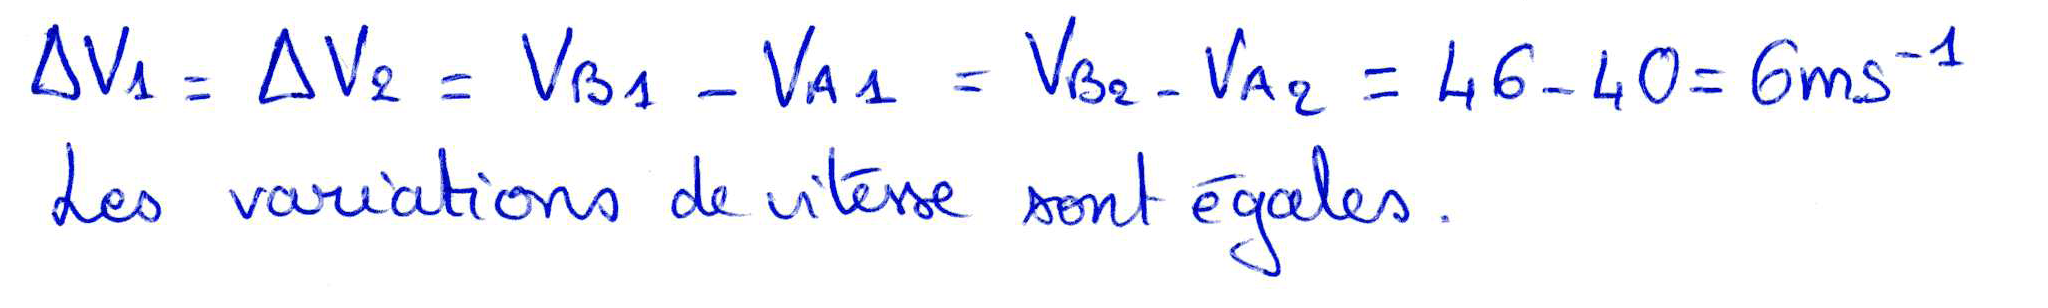 ΔV₁ = ΔV₂ = V_B1 - V_A1 = V_B2 - V_A2 = 46 - 40 = 6 ms⁻¹
Les variations de vitēsse sont égales.